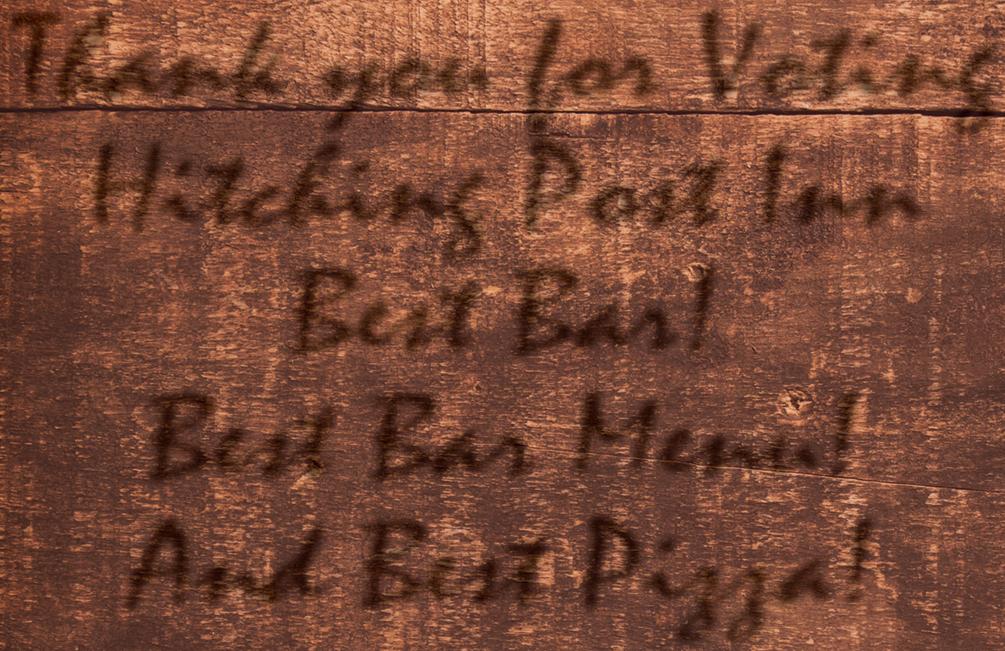 Thank you for Voting
Hitching Post Inn
Best Bar!
Best Bar Menu!
And Best Pizza!